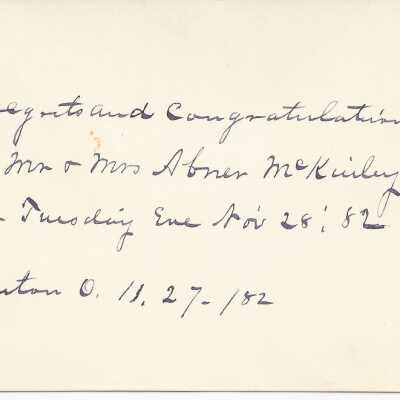 egrets and Congratulation
Mr & Mrs Abner McKinley
Tuesday Eve Nov 28', 82
nton O. 11. 27 - /82